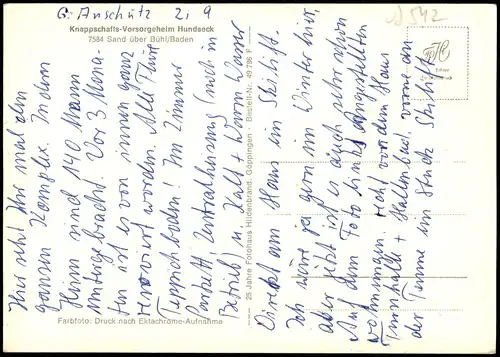 G. Anschütz 2i9
1542
Knappschafts-Vorsorgeheim Hundseck
7584 Sand über Bühl/Baden
Hier seht Ihr mal den
ganzen Komplex. In dem
Heim sind 140 Mann
untergebracht. Vor 3 Mona-
ten ist es von innen ganz
renoviert worden. Alle Flure
Teppichboden! Im Zimmer
Parkett Zentralheizung (noch in
Betrieb) u. Kalt + Warm Wasser
Direkt am Haus im Skilift.
Ich wäre ja gern im Winter hier,
aber jetzt ist es auch sehr schön
Auf dem Foto links Angestellten
wohnungen. recht vor dem Haus
Turnhalle + Hallenbad. vorne an
der Tanne ein Stück Skilift
25 Jahre Fotohaus Hildenbrand, Göppingen · Bestell-Nr. 49 786 F
Farbfoto: Druck nach Ektachrome-Aufnahme